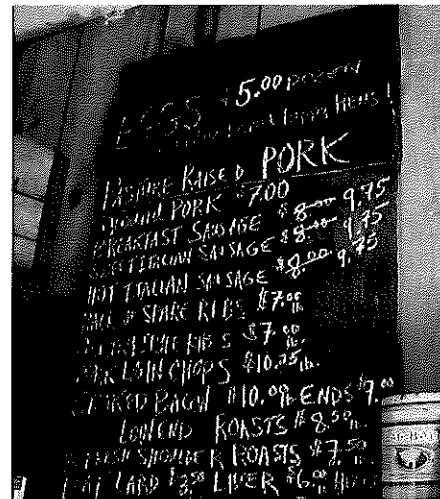 EGGS $5.00 DOZEN
Happy HENS!
PASTURE RAISED PORK
GROUND PORK 7.00
BREAKFAST SAUSAGE $8.00 9.75
SWEET ITALIAN SAUSAGE $8.00 9.75
HOT ITALIAN SAUSAGE $8.00 9.75
SPARE RIBS $7.00 lb.
RIBS $7.00 lb.
PORK LOIN CHOPS $10.25 lb.
BACON $10.00 lb ENDS $7.00
LOIN END ROASTS $8.50 lb.
FRESH SHOULDER ROASTS $7.50 lb.
LARD $3.50 LIVER $6.00